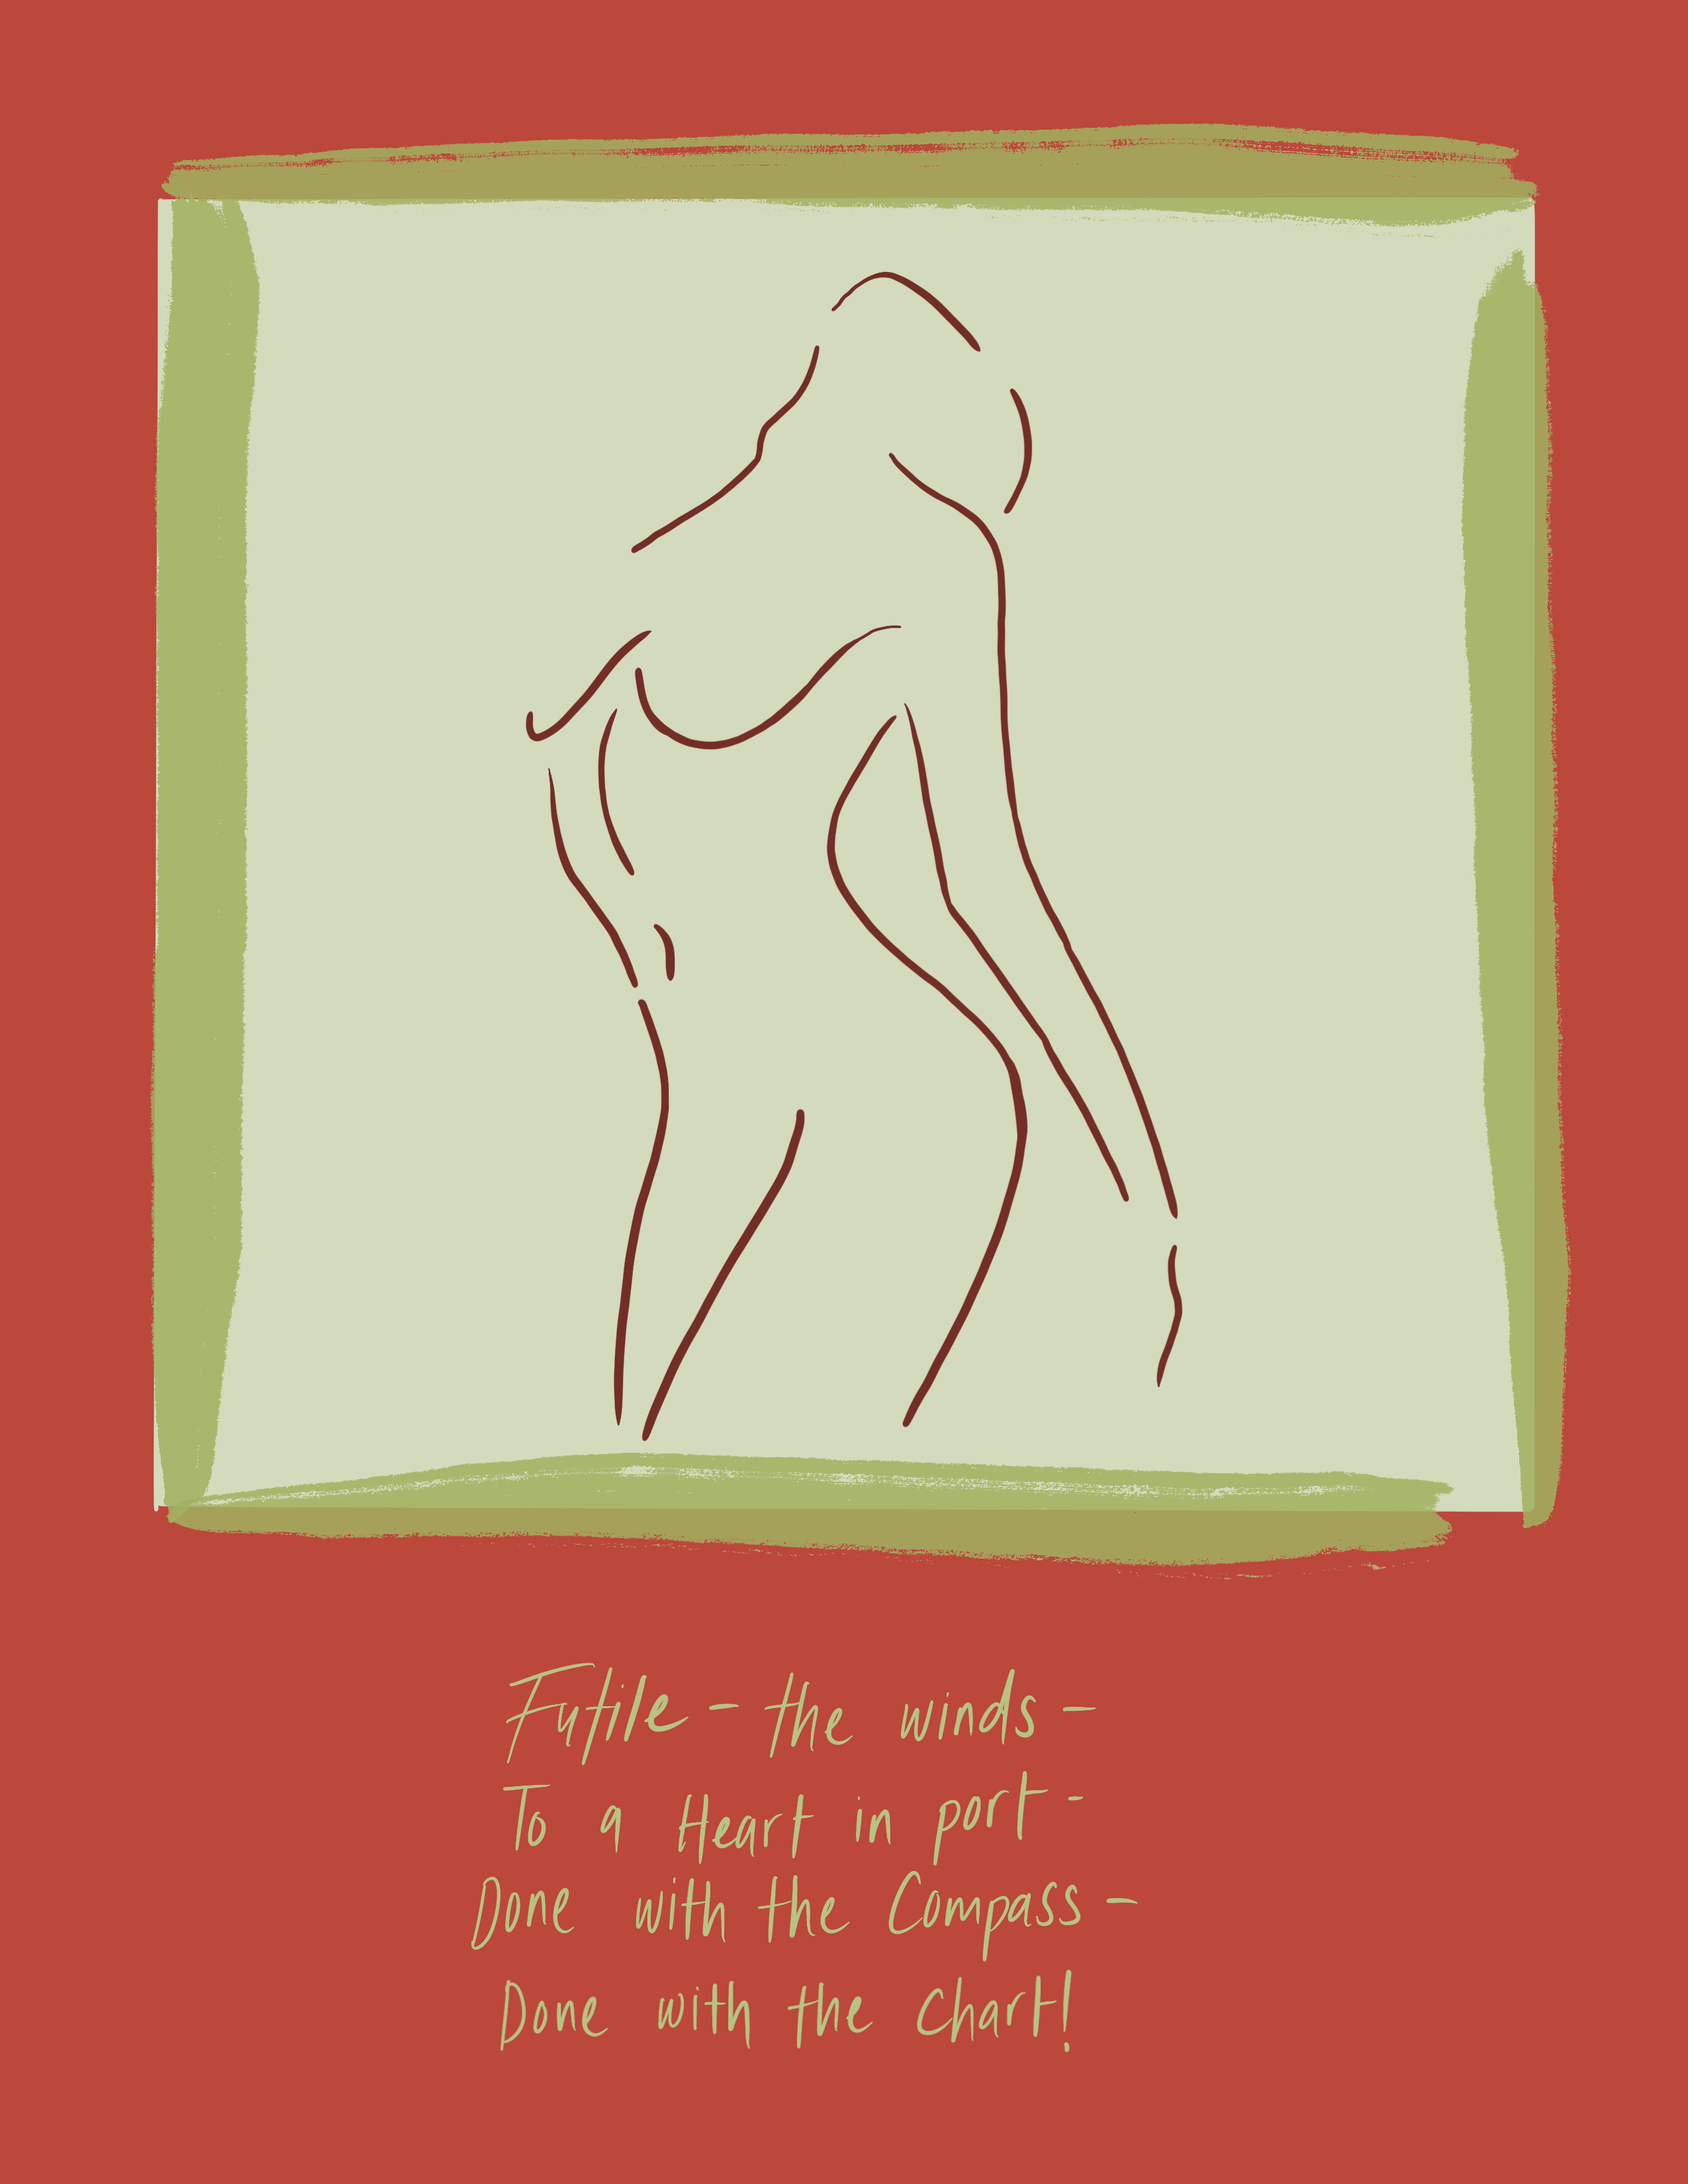 Futile - the winds -
To a Heart in port -
Done with the Compass -
Done with the Chart!